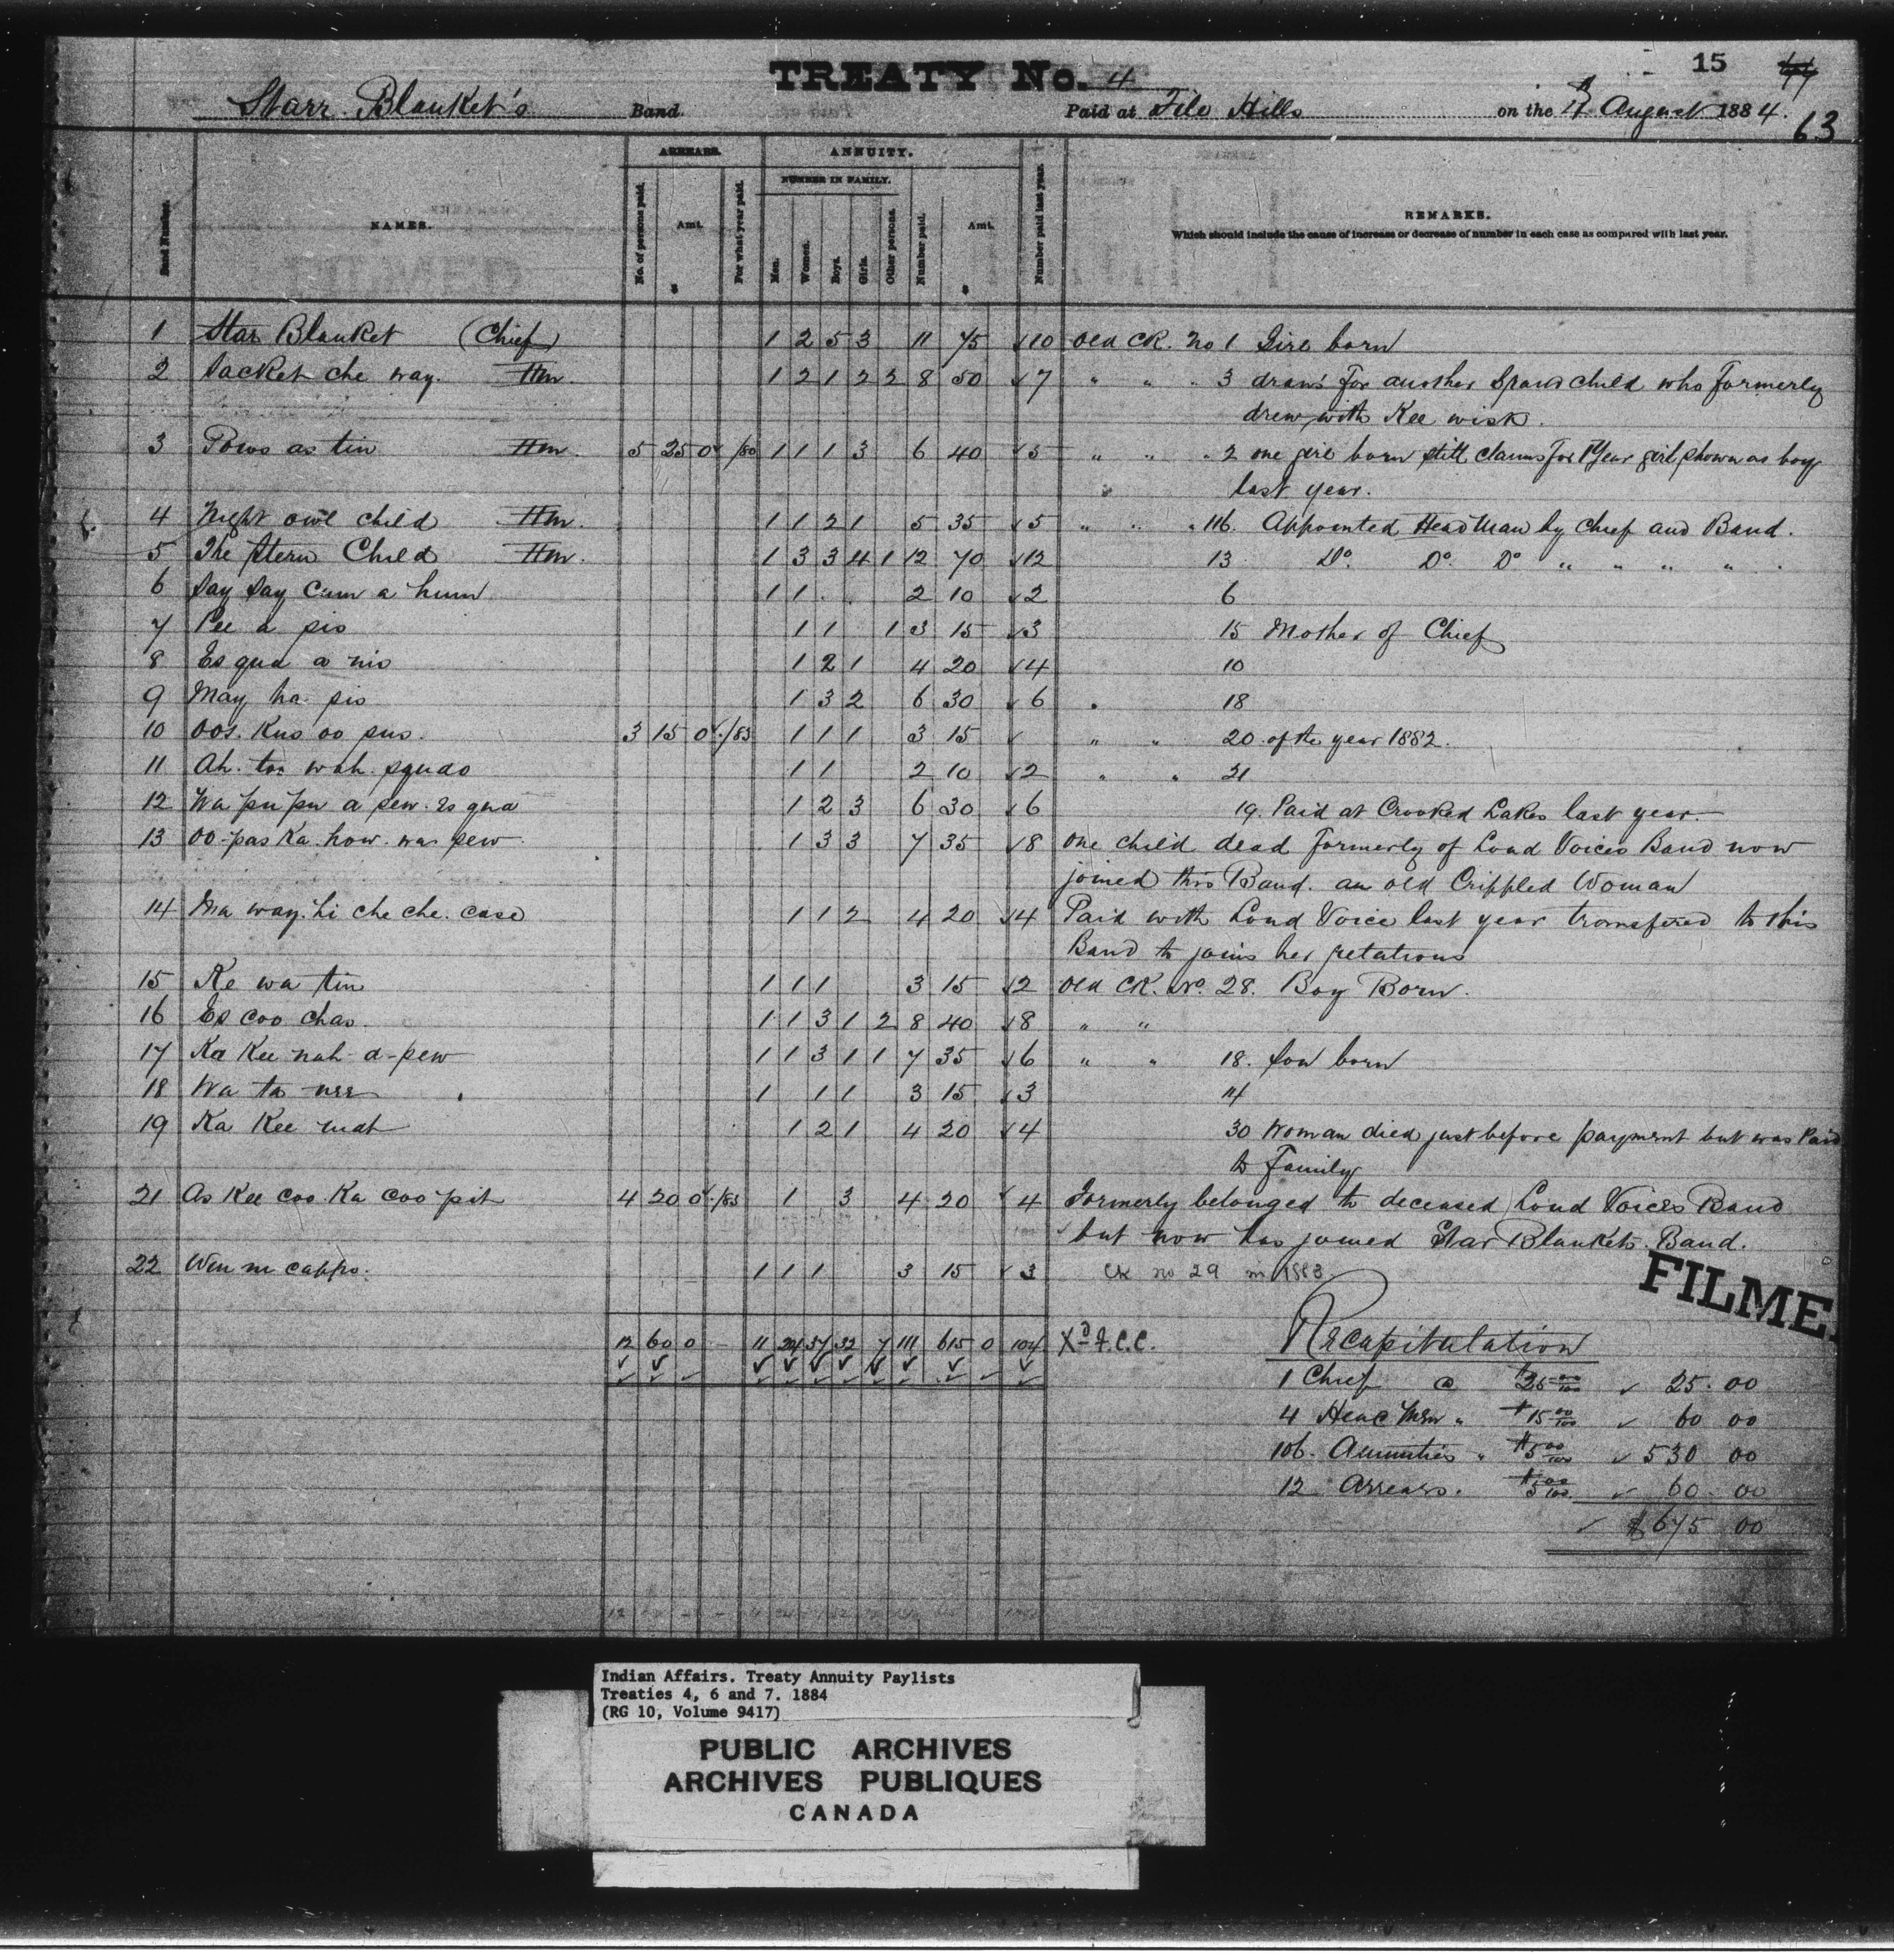 15
TREATY No. 4
Starr Blanket's Band. Paid at File Hills on the August 1884.
63
ARREARS. ANNUITY.
NUMBER IN FAMILY.
Band Number. NAMES. No. of persons paid. Amt. $ For what year paid. Men. Women. Boys. Girls. Other persons. Number paid. Amt. $ Number paid last year. REMARKS.
Which should include the cause of increase or decrease of number in each case as compared with last year.
1 Star Blanket (Chief) 1 2 5 3 11 75 ✓10 Old CK. No 1 Girl born
2 Sacket che way. Hm. 1 2 1 2 2 8 50 ✓7 " " " 3 draws for another Spare child who formerly
drew with Kee wisk.
3 Pows as tin Hm. 5 25 0 /80 1 1 1 3 6 40 ✓5 " " " 2 one girl born still claims for 1 Year girl shown as boy
last year.
4 Night owl child Hm. 1 1 2 1 5 35 ✓5 " " " 116. Appointed Head Man by Chief and Band.
5 The Stern Child Hm. 1 3 3 4 1 12 70 ✓12 13 Do. Do. Do " " " " .
6 Say Say Cum a hum 1 1 . . 2 10 ✓2 6
7 Pee a pis 1 1 1 3 15 ✓3 15 Mother of Chief
8 Es qua a nis 1 2 1 4 20 ✓4 10
9 May ha. pis 1 3 2 6 30 ✓6 " 18
10 Oos. Kus oo pus. 3 15 0 ✓./83 1 1 1 3 15 ✓ " " 20 of the year 1882.
11 Ah. too wah. squao 1 1 2 10 ✓2 " " 21
12 Wa pu pu a sew. Es qua 1 2 3 6 30 ✓6 19. Paid at Crooked Lakes last year.
13 Oo-pas Ka. how. was sew 1 3 3 7 35 ✓8 one child dead formerly of Loud Voices Band now
joined this Band. an old Crippled Woman
14 Ma way. hi che che. case 1 1 2 4 20 ✓4 Paid with Loud Voice last year transfered to this
Band to joins her relations
15 Ke wa tin 1 1 1 3 15 ✓2 Old CK. No. 28. Boy Born.
16 Es coo chas. 1 1 3 1 2 8 40 ✓8 " "
17 Ka Kee nah-a-pew 1 1 3 1 1 7 35 ✓6 " " 18. Son born
18 Wa ta nee 1 1 1 3 15 ✓3 14
19 Ka Kee mat 1 2 1 4 20 ✓4 30 Woman died just before payment but was Paid
to Family
21 As Kee coo. Ka coo pit 4 20 0 ✓./83 1 3 4 20 ✓4 Formerly belonged to deceased Loud Voices Band
but now has joined Star Blankets. Band.
22 Win ni cappo. 1 1 1 3 15 ✓3 CK no 29 in 1883.
FILME
12 60 0 - 11 24 37 32 7 111 615 0 104 Xd F.C.C. Recapitulation
1 Chief @ $25 00/100 ✓ 25.00
4 Head Men " $15 00/100 ✓ 60 00
106. Annuities " $5 00/100 ✓ 530 00
12 Arrears. $5 00/100 ✓ 60. 00
✓ $675 00
Indian Affairs. Treaty Annuity Paylists
Treaties 4, 6 and 7. 1884
(RG 10, Volume 9417)
PUBLIC ARCHIVES
ARCHIVES PUBLIQUES
CANADA